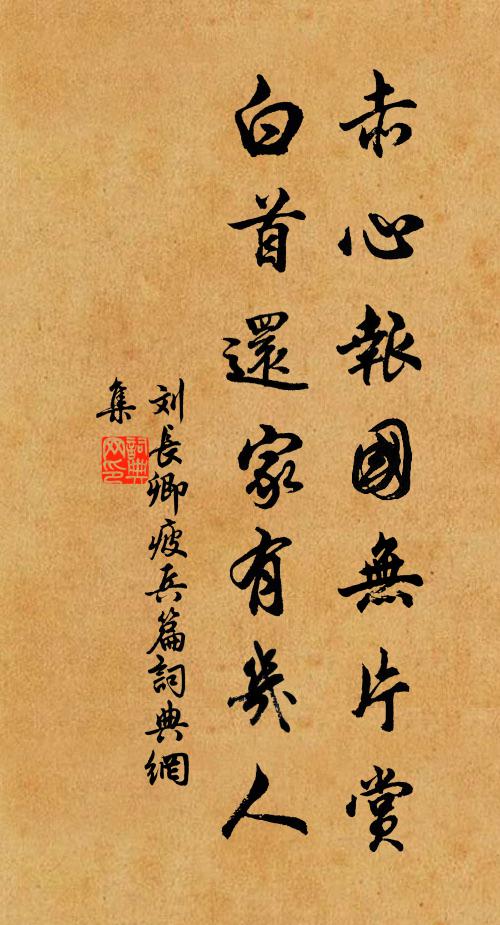 赤心報國無片賞
白首還家有幾人
刘長卿疲兵篇詞典網
集
詞典
网印